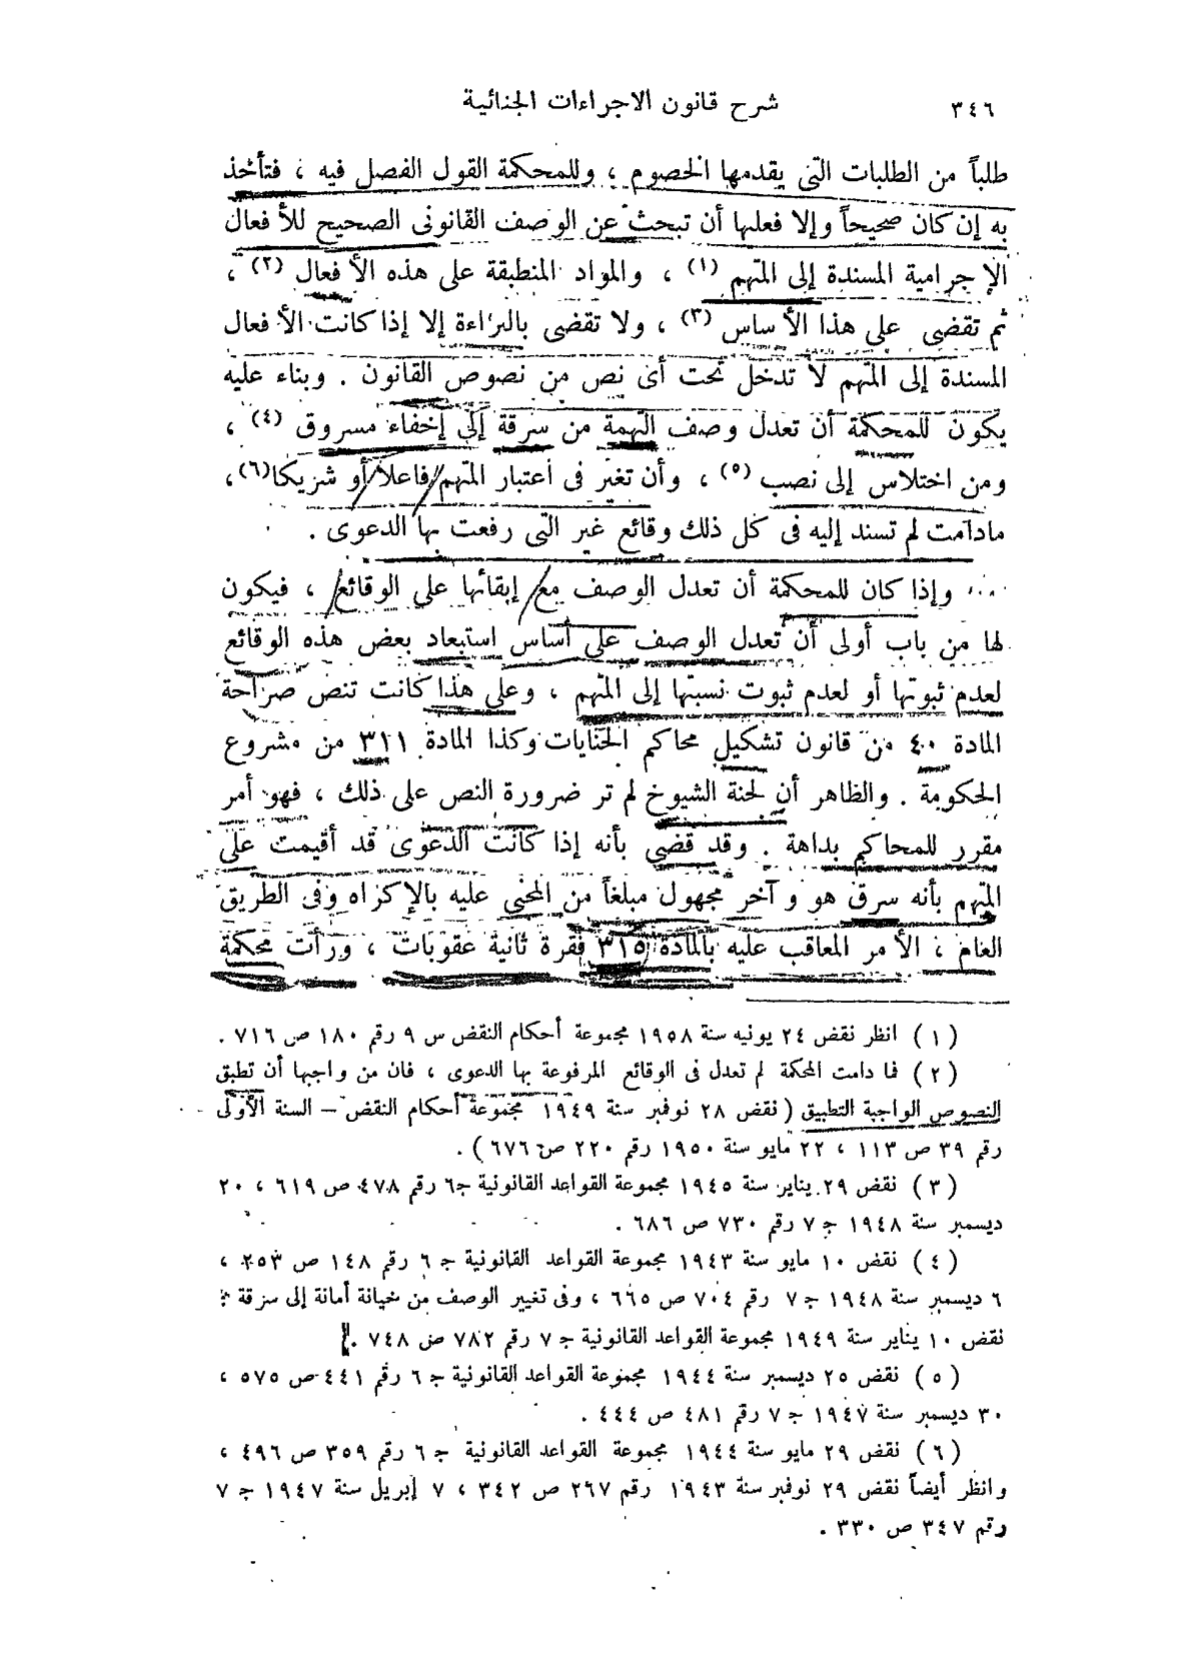 ٣٤٦ شرح قانون الاجراءات الجنائية
طلباً من الطلبات التى يقدمها الخصوم ، وللمحكمة القول الفصل فيه ، فتأخذ
به إن كان صحيحاً وإلا فعليها أن تبحث عن الوصف القانونى الصحيح للأفعال
الإجرامية المسندة إلى المتهم (١) ، والمواد المنطبقة على هذه الأفعال (٢) ،
ثم تقضى على هذا الأساس (٣) ، ولا تقضى بالبراءة إلا إذا كانت الأفعال
المسندة إلى المتهم لا تدخل تحت أى نص من نصوص القانون . وبناء عليه
يكون للمحكمة أن تعدل وصف التهمة من سرقة إلى إخفاء مسروق (٤) ،
ومن اختلاس إلى نصب (٥) ، وأن تغير فى اعتبار المتهم فاعلا أو شريكا (٦) ،
مادامت لم تسند إليه فى كل ذلك وقائع غير التى رفعت بها الدعوى .
وإذا كان للمحكمة أن تعدل الوصف مع إبقائها على الوقائع ، فيكون
لها من باب أولى أن تعدل الوصف على أساس استبعاد بعض هذه الوقائع
لعدم ثبوتها أو لعدم ثبوت نسبتها إلى المتهم ، وعلى هذا كانت تنص صراحة
المادة ٤٠ من قانون تشكيل محاكم الجنايات وكذا المادة ٣١١ من مشروع
الحكومة . والظاهر أن لجنة الشيوخ لم تر ضرورة النص على ذلك ، فهو أمر
مقرر للمحاكم بداهة . وقد قضى بأنه إذا كانت الدعوى قد أقيمت على
المتهم بأنه سرق هو وآخر مجهول مبلغاً من المجنى عليه بالإكراه وفى الطريق
العام ، الأمر المعاقب عليه بالمادة ٣١٥ فقرة ثانية عقوبات ، ورأت محكمة
(١) انظر نقض ٢٤ يونيه سنة ١٩٥٨ مجموعة أحكام النقض س ٩ رقم ١٨٠ ص ٧١٦ .
(٢) فما دامت المحكمة لم تعدل فى الوقائع المرفوعة بها الدعوى ، فان من واجبها أن تطبق
النصوص الواجبة التطبيق (نقض ٢٨ نوفمبر سنة ١٩٤٩ مجموعة أحكام النقض – السنة الأولى
رقم ٣٩ ص ١١٣ ، ٢٢ مايو سنة ١٩٥٠ رقم ٢٢٠ ص ٦٧٦) .
(٣) نقض ٢٩ يناير سنة ١٩٤٥ مجموعة القواعد القانونية ج ٦ رقم ٤٧٨ ص ٦١٩ ، ٢٠
ديسمبر سنة ١٩٤٨ ج ٧ رقم ٧٣٠ ص ٦٨٦ .
(٤) نقض ١٠ مايو سنة ١٩٤٣ مجموعة القواعد القانونية ج ٦ رقم ١٤٨ ص ٢٥٣ ،
٦ ديسمبر سنة ١٩٤٨ ج ٧ رقم ٧٠٤ ص ٦٦٥ ، وفى تغيير الوصف من خيانة أمانة إلى سرقة :
نقض ١٠ يناير سنة ١٩٤٩ مجموعة القواعد القانونية ج ٧ رقم ٧٨٢ ص ٧٤٨ .
(٥) نقض ٢٥ ديسمبر سنة ١٩٤٤ مجموعة القواعد القانونية ج ٦ رقم ٤٤١ ص ٥٧٥ ،
٣٠ ديسمبر سنة ١٩٤٧ ج ٧ رقم ٤٨١ ص ٤٤٤ .
(٦) نقض ٢٩ مايو سنة ١٩٤٤ مجموعة القواعد القانونية ج ٦ رقم ٣٥٩ ص ٤٩٦ ،
وانظر أيضاً نقض ٢٩ نوفمبر سنة ١٩٤٣ رقم ٢٦٧ ص ٣٤٢ ، ٧ إبريل سنة ١٩٤٧ ج ٧
رقم ٣٤٧ ص ٣٣٠ .